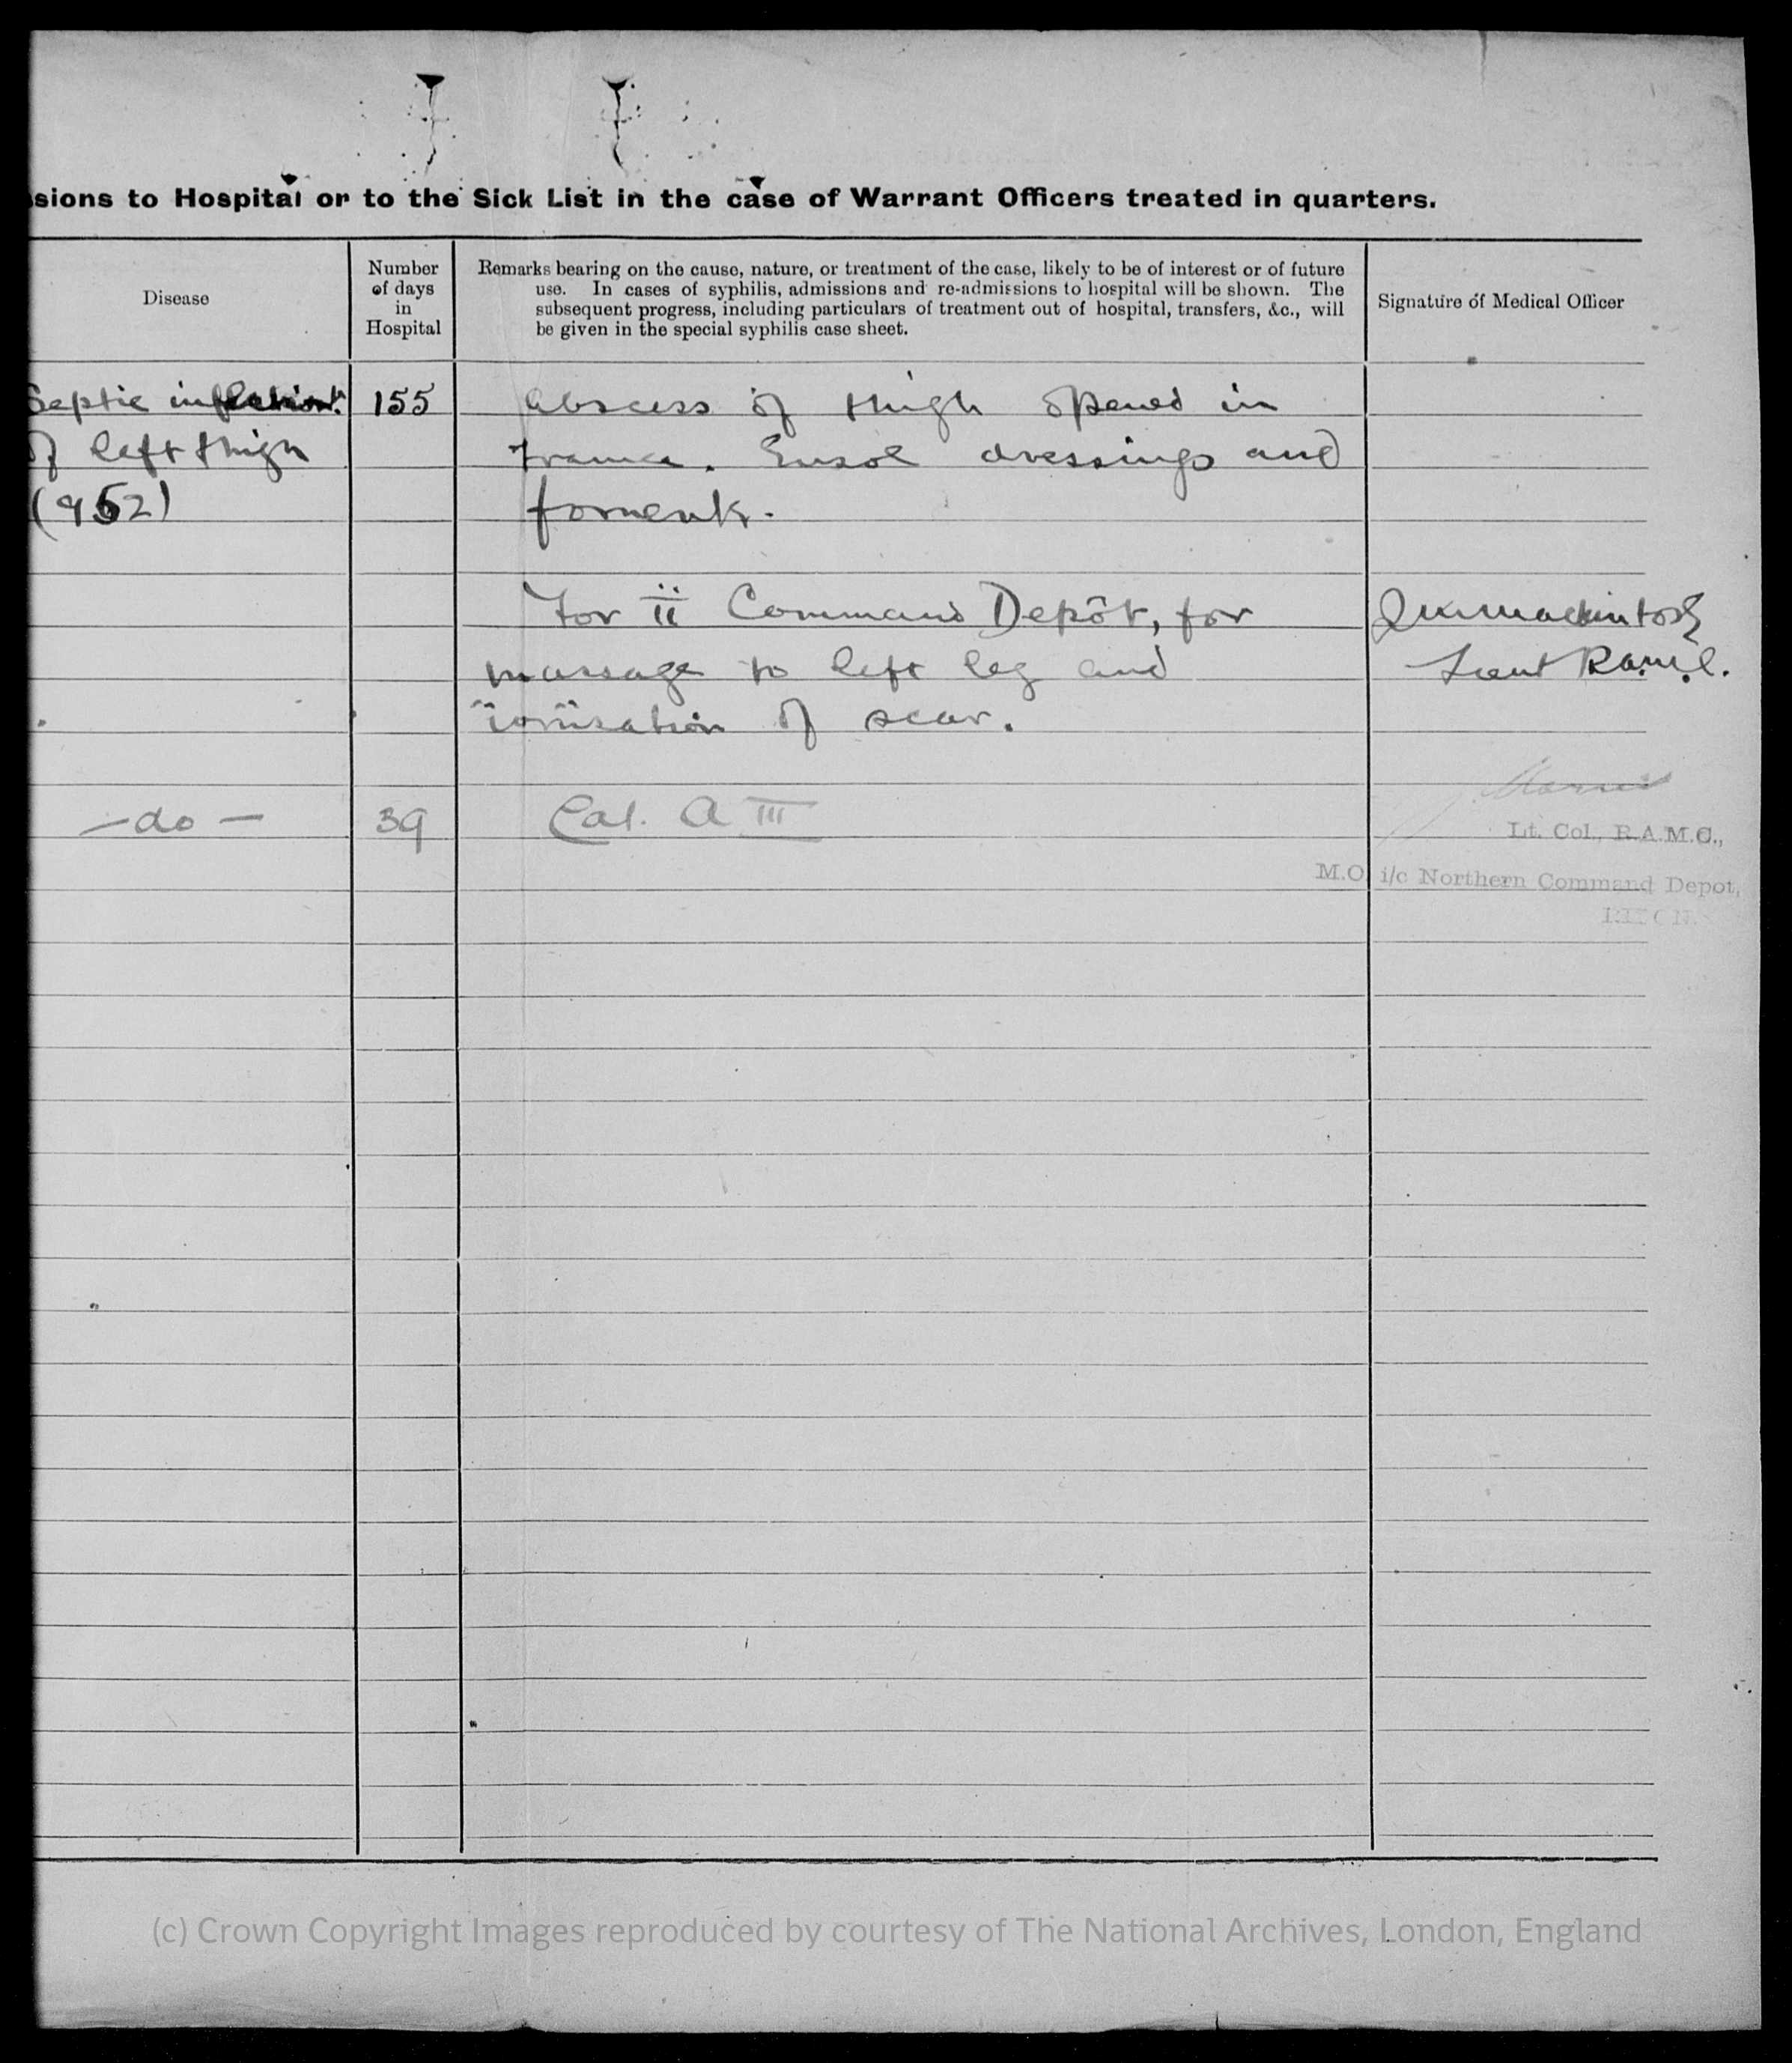 ssions to Hospital or to the Sick List in the case of Warrant Officers treated in quarters.
Disease
Number
of days
in
Hospital
Remarks bearing on the cause, nature, or treatment of the case, likely to be of interest or of future
use. In cases of syphilis, admissions and re-admissions to hospital will be shown. The
subsequent progress, including particulars of treatment out of hospital, transfers, &c., will
be given in the special syphilis case sheet.
Signature of Medical Officer
Septic
of left thigh
(952)
155
Abscess of thigh opened in
France. Eusol dressings and
foments.
For ii Command Depôt, for
massage to left leg and
ionisation of scar.
Mackintosh
Lieut R.A.M.C.
- do -
39
Cat. A III
Lt. Col., R.A.M.C.,
M.O. i/c Northern Command Depot,
(c) Crown Copyright Images reproduced by courtesy of The National Archives, London, England